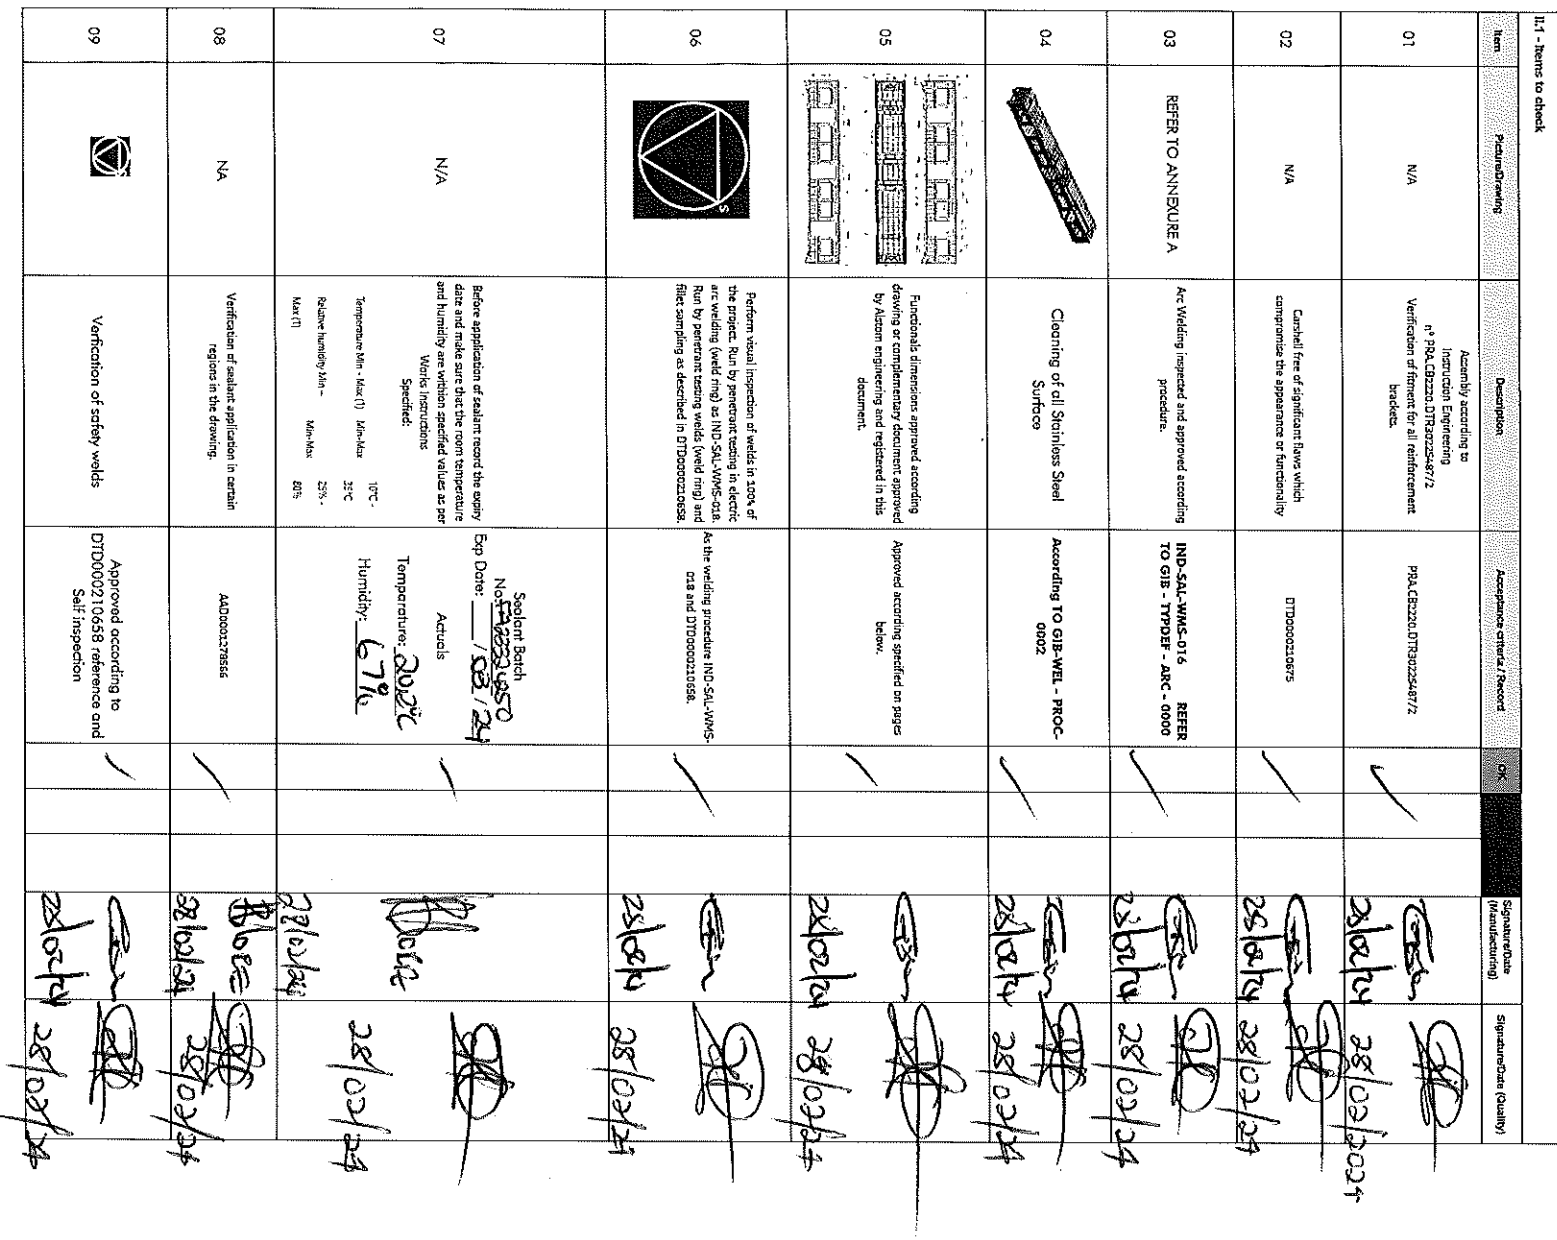 II.1 - Items to check
Item Picture/Drawing Description Acceptance criteria / Record OK Signature/Date (Manufacturing) Signature/Date (Quality)
01
N/A
Assembly according to
Instruction Engineering
nº PRA.CB2220.DTR30225487/2
Verification of fitment for all reinforcement
brackets.
PRA.CB2220.DTR30225487/2
28/02/24
28/02/2024
02
N/A
Carshell free of significant flaws which
compromise the appearance or functionality
DTD0000210675
28/02/24
28/02/24
03
REFER TO ANNEXURE A
Arc Welding inspected and approved according
procedure.
IND-SAL-WMS-016 REFER
TO GIB - TYPDEF - ARC - 0000
28/02/24
28/02/24
04
Cleaning of all Stainless Steel
Surface
According TO GIB-WEL - PROC-
0002
28/02/24
28/02/24
05
Functionals dimensions approved according
drawing or complementary document approved
by Alstom engineering and registered in this
document.
Approved according specified on pages
below.
28/02/24
28/02/24
06
S
Perform visual inspection of welds in 100% of
the project. Run by penetrant testing in electric
arc welding (weld ring) as IND-SAL-WMS-018.
Run by penetrant testing welds (weld ring) and
fillet sampling as described in DTD0000210658.
As the welding procedure IND-SAL-WMS-
018 and DTD0000210658.
28/02/24
28/02/24
07
N/A
Before appplication of sealant record the expiry
date and make sure that the room temperature
and humidity are withion specified values as per
Works Instructions
Specified:
Temperature Min - Max (1) Min-Max 10ºC -
35ºC
Relative humidity Min - Min-Max 25% -
Max (1) 80%
Sealant Batch
No:
Exp Date: / 08 / 24
Actuals
Temperature: 20.2ºC
Humidity: 67%
28/02/24
28/02/24
08
NA
Verification of sealant application in certain
regions in the drawing.
AAD0001278566
28/02/24
28/02/24
09
S
Verfication of safety welds
Approved according to
DTD0000210658 reference and
Self inspection
28/02/24
28/02/24